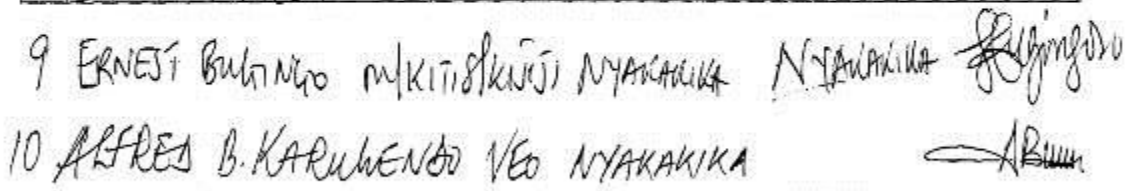 9 ERNEST BUGINGO M/KITI S/KIJIJI NYAKAKIKA NYAKAKIKA
10 ALFRED B. KARUHENDO VEO NYAKAKIKA